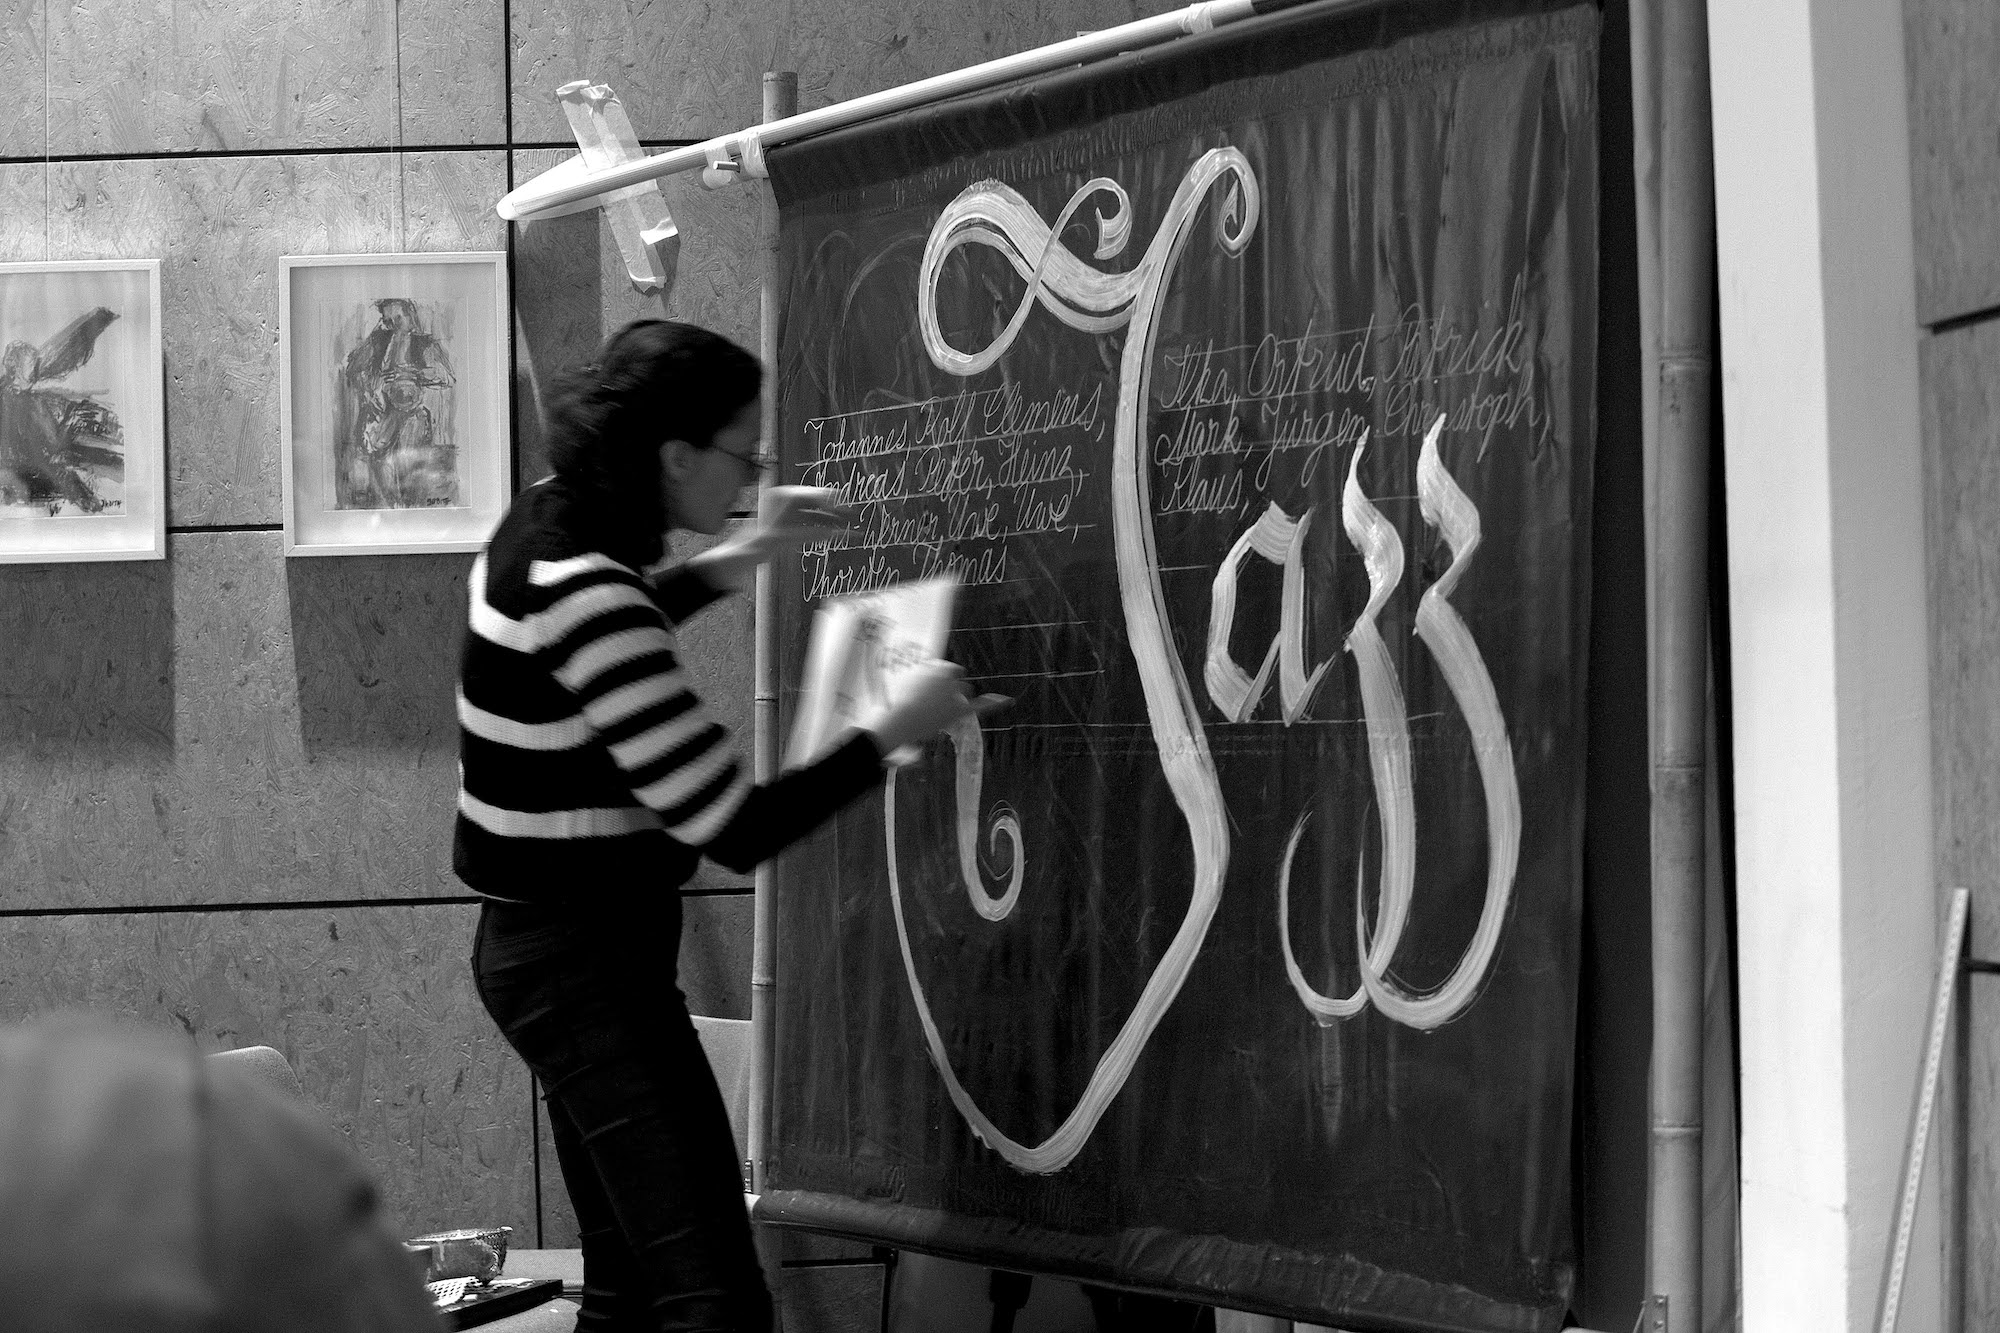 Johannes, Rolf, Clemens,
Andreas, Peter, Heinz,
Hans-Werner, Uwe, Uwe,
Thorsten, Thomas
Ilka, Ortrud, Patrick,
Mark, Jürgen, Christoph,
Klaus,
Jazz